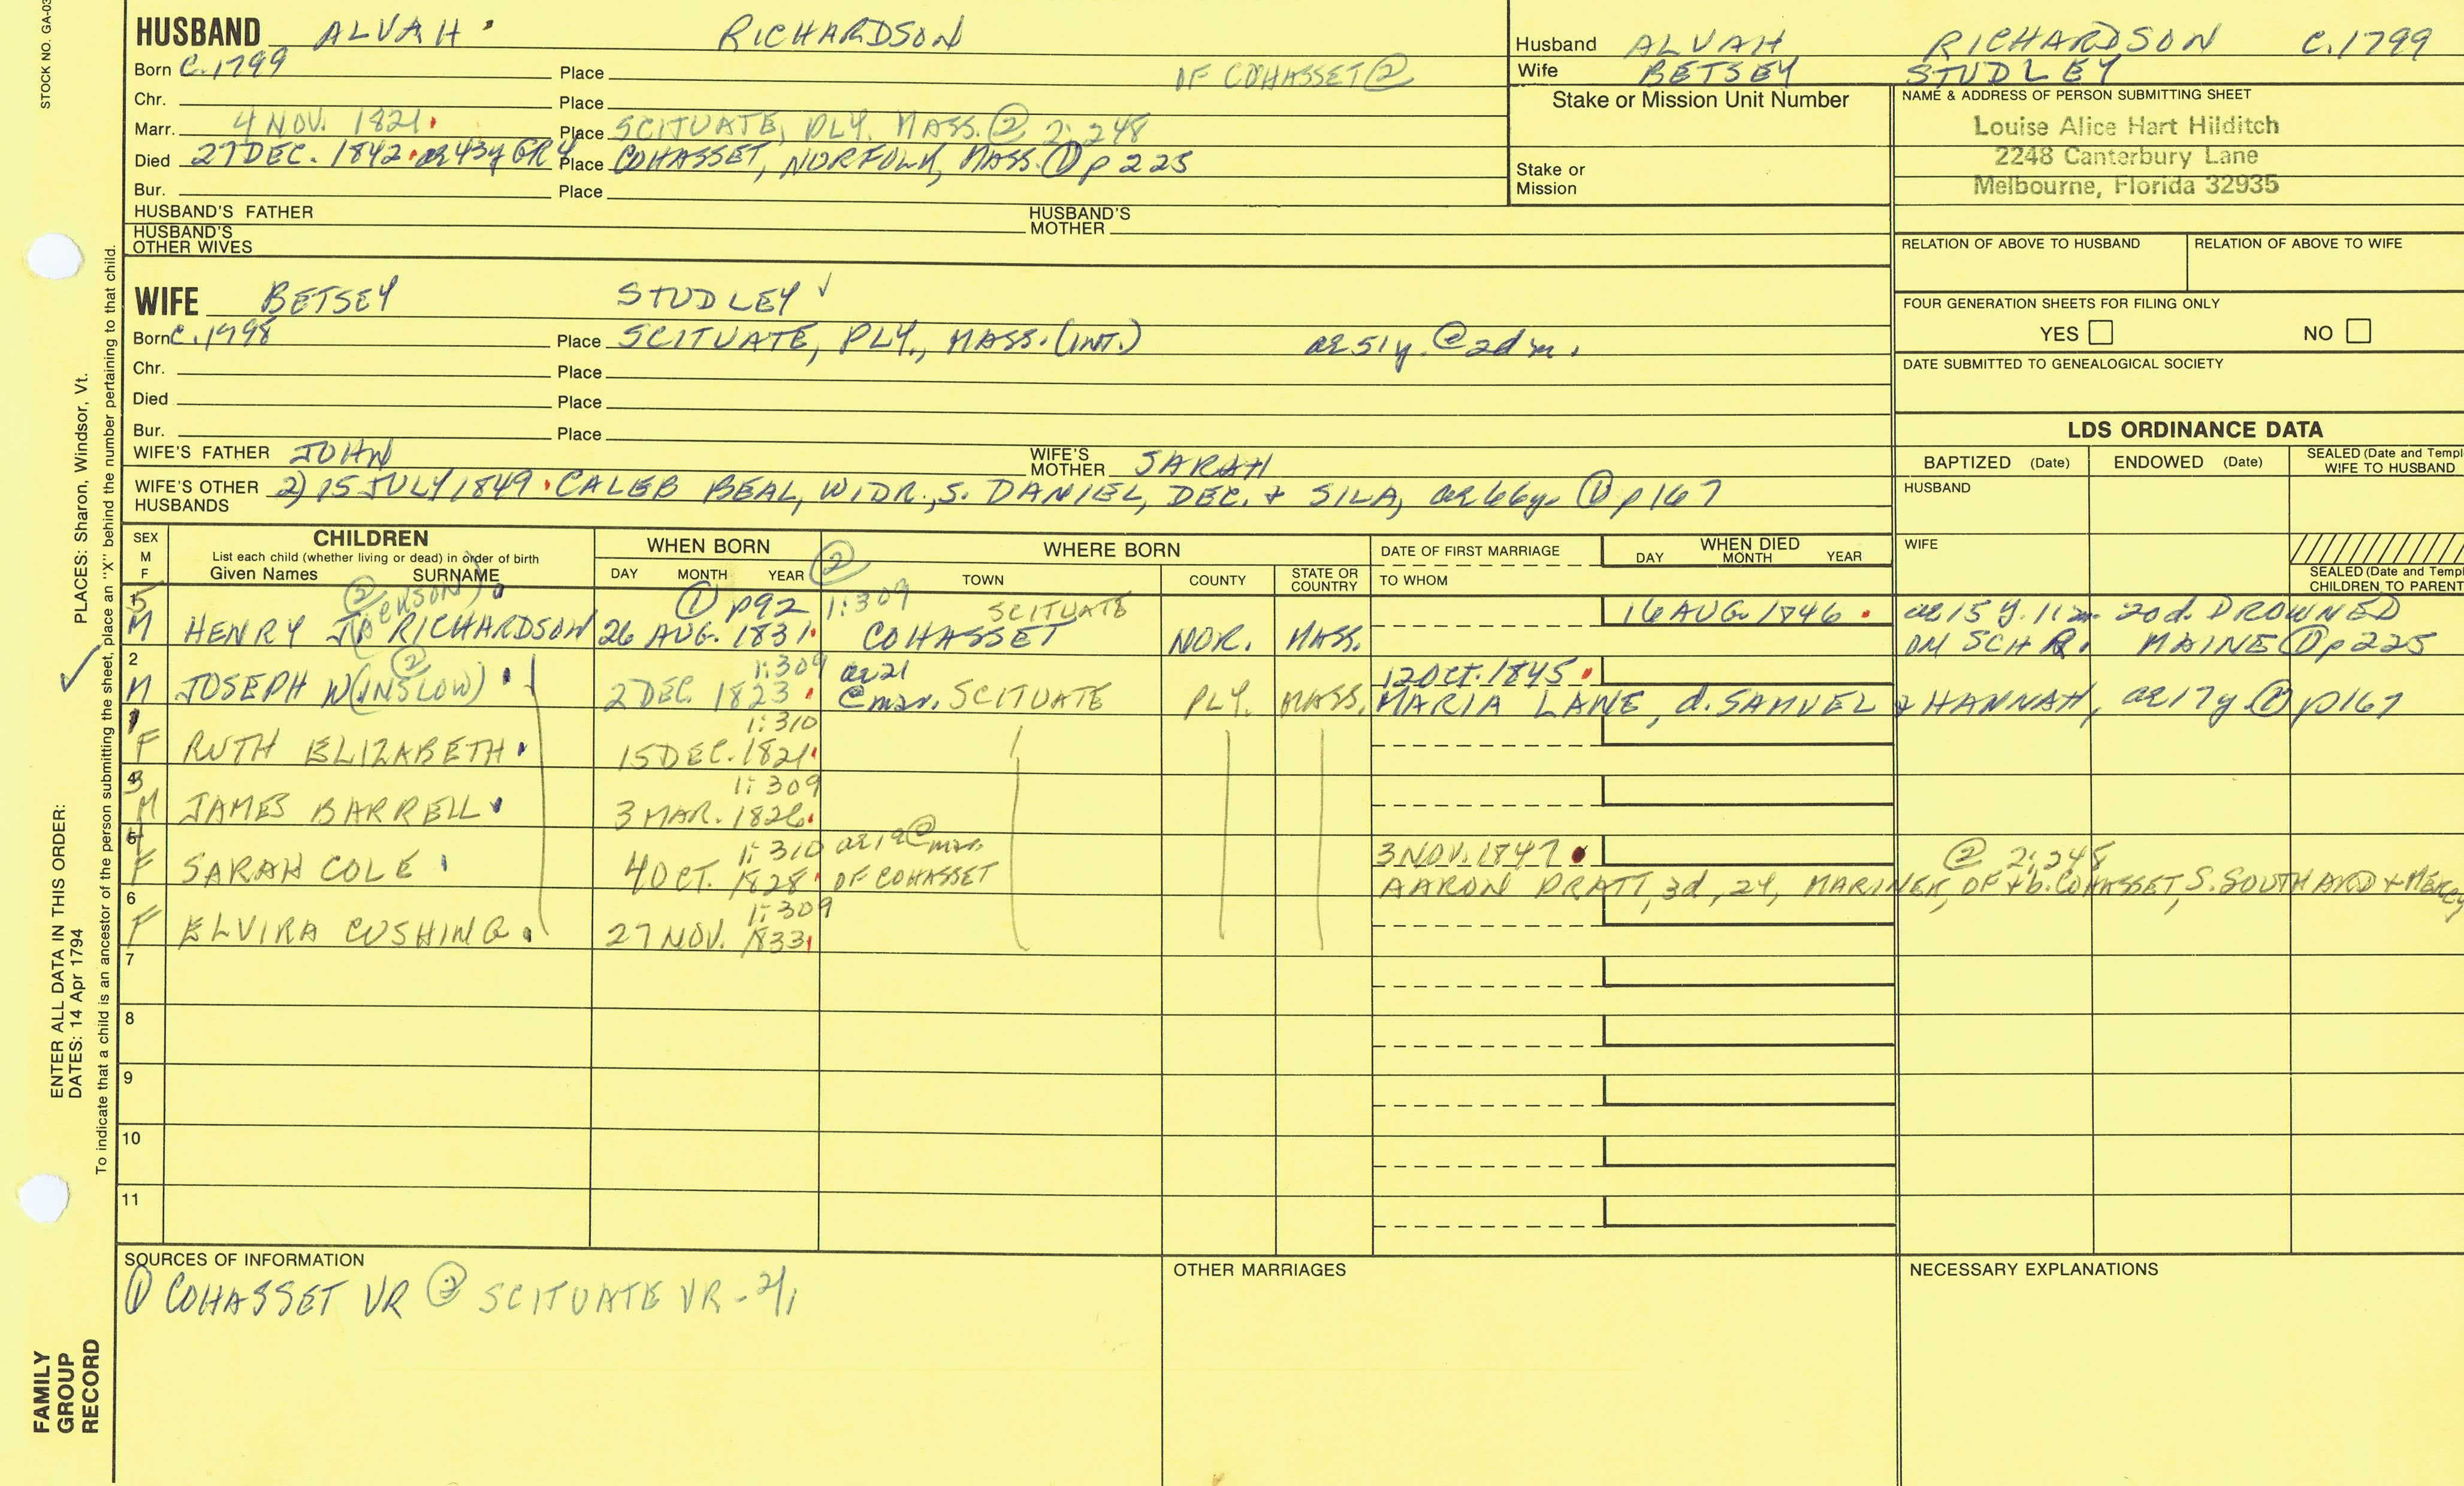 STOCK NO. GA-03
HUSBAND ALVAH RICHARDSON
Born C. 1799 Place OF COHASSET ②
Chr. Place
Marr. 4 NOV. 1821. Place SCITUATE, PLY. MASS. ② 2:248
Died 27 DEC. 1842 ae 43y GR4 Place COHASSET, NORFOLK, MASS. ① p 225
Bur. Place
HUSBAND'S FATHER HUSBAND'S MOTHER
HUSBAND'S OTHER WIVES
WIFE BETSEY STUDLEY √
Born C. 1798 Place SCITUATE, PLY., MASS. (INT.) ae 51y. @ 2d m.
Chr. Place
Died Place
Bur. Place
WIFE'S FATHER JOHN WIFE'S MOTHER SARAH
WIFE'S OTHER HUSBANDS 2) 15 JULY 1849 · CALEB BEAL, WIDR., S. DANIEL, DEC. & SILA, ae 66y. ① p 167
Husband ALVAH RICHARDSON C. 1799
Wife BETSEY STUDLEY
Stake or Mission Unit Number
Stake or Mission
NAME & ADDRESS OF PERSON SUBMITTING SHEET
Louise Alice Hart Hilditch
2248 Canterbury Lane
Melbourne, Florida 32935
RELATION OF ABOVE TO HUSBAND RELATION OF ABOVE TO WIFE
FOUR GENERATION SHEETS FOR FILING ONLY
YES NO
DATE SUBMITTED TO GENEALOGICAL SOCIETY
LDS ORDINANCE DATA
BAPTIZED (Date) ENDOWED (Date) SEALED (Date and Templ
WIFE TO HUSBAND
HUSBAND
WIFE
SEALED (Date and Templ
CHILDREN TO PARENT
SEX M F
CHILDREN
List each child (whether living or dead) in order of birth
Given Names SURNAME
WHEN BORN
DAY MONTH YEAR
②
WHERE BORN
TOWN COUNTY STATE OR COUNTRY
DATE OF FIRST MARRIAGE
TO WHOM
WHEN DIED
DAY MONTH YEAR
② ① p92 1:309 SCITUATE 16 AUG. 1846 · ae 15 y. 11 m. 20d. DROWNED
5 M HENRY RICHARDSON 26 AUG. 1831. COHASSET NOR. MASS. MAINE ① p 225
2 ② 1:309 ae 21 12 OCT. 1845 ·
M JOSEPH W(INSLOW) · 2 DEC. 1823 · @ mar. SCITUATE PLY. MASS. MARIA LANE, d. SAMUEL & HANNAH, ae 17y ① p 167
1 1:310
F RUTH ELIZABETH · 15 DEC. 1821.
3 1:309
M JAMES BARRELL · 3 MAR. 1826.
1:310 ae 19 @ mar. 3 NOV. 1847 · ② 2:248
F SARAH COLE 4 OCT. 1828 · OF COHASSET AARON PRATT, 3d, 24, MARINER, OF & b. COHASSET, S. SOUTHARD & Mercy
6 1:309
F ELVIRA CUSHING. 27 NOV. 1833.
7
8
9
10
11
SOURCES OF INFORMATION
① COHASSET VR ② SCITUATE VR - 2/1
OTHER MARRIAGES
NECESSARY EXPLANATIONS
ENTER ALL DATA IN THIS ORDER:
DATES: 14 Apr 1794
PLACES: Sharon, Windsor, Vt.
To indicate that a child is an ancestor of the person submitting the sheet, place an "X" behind the number pertaining to that child.
FAMILY
GROUP
RECORD